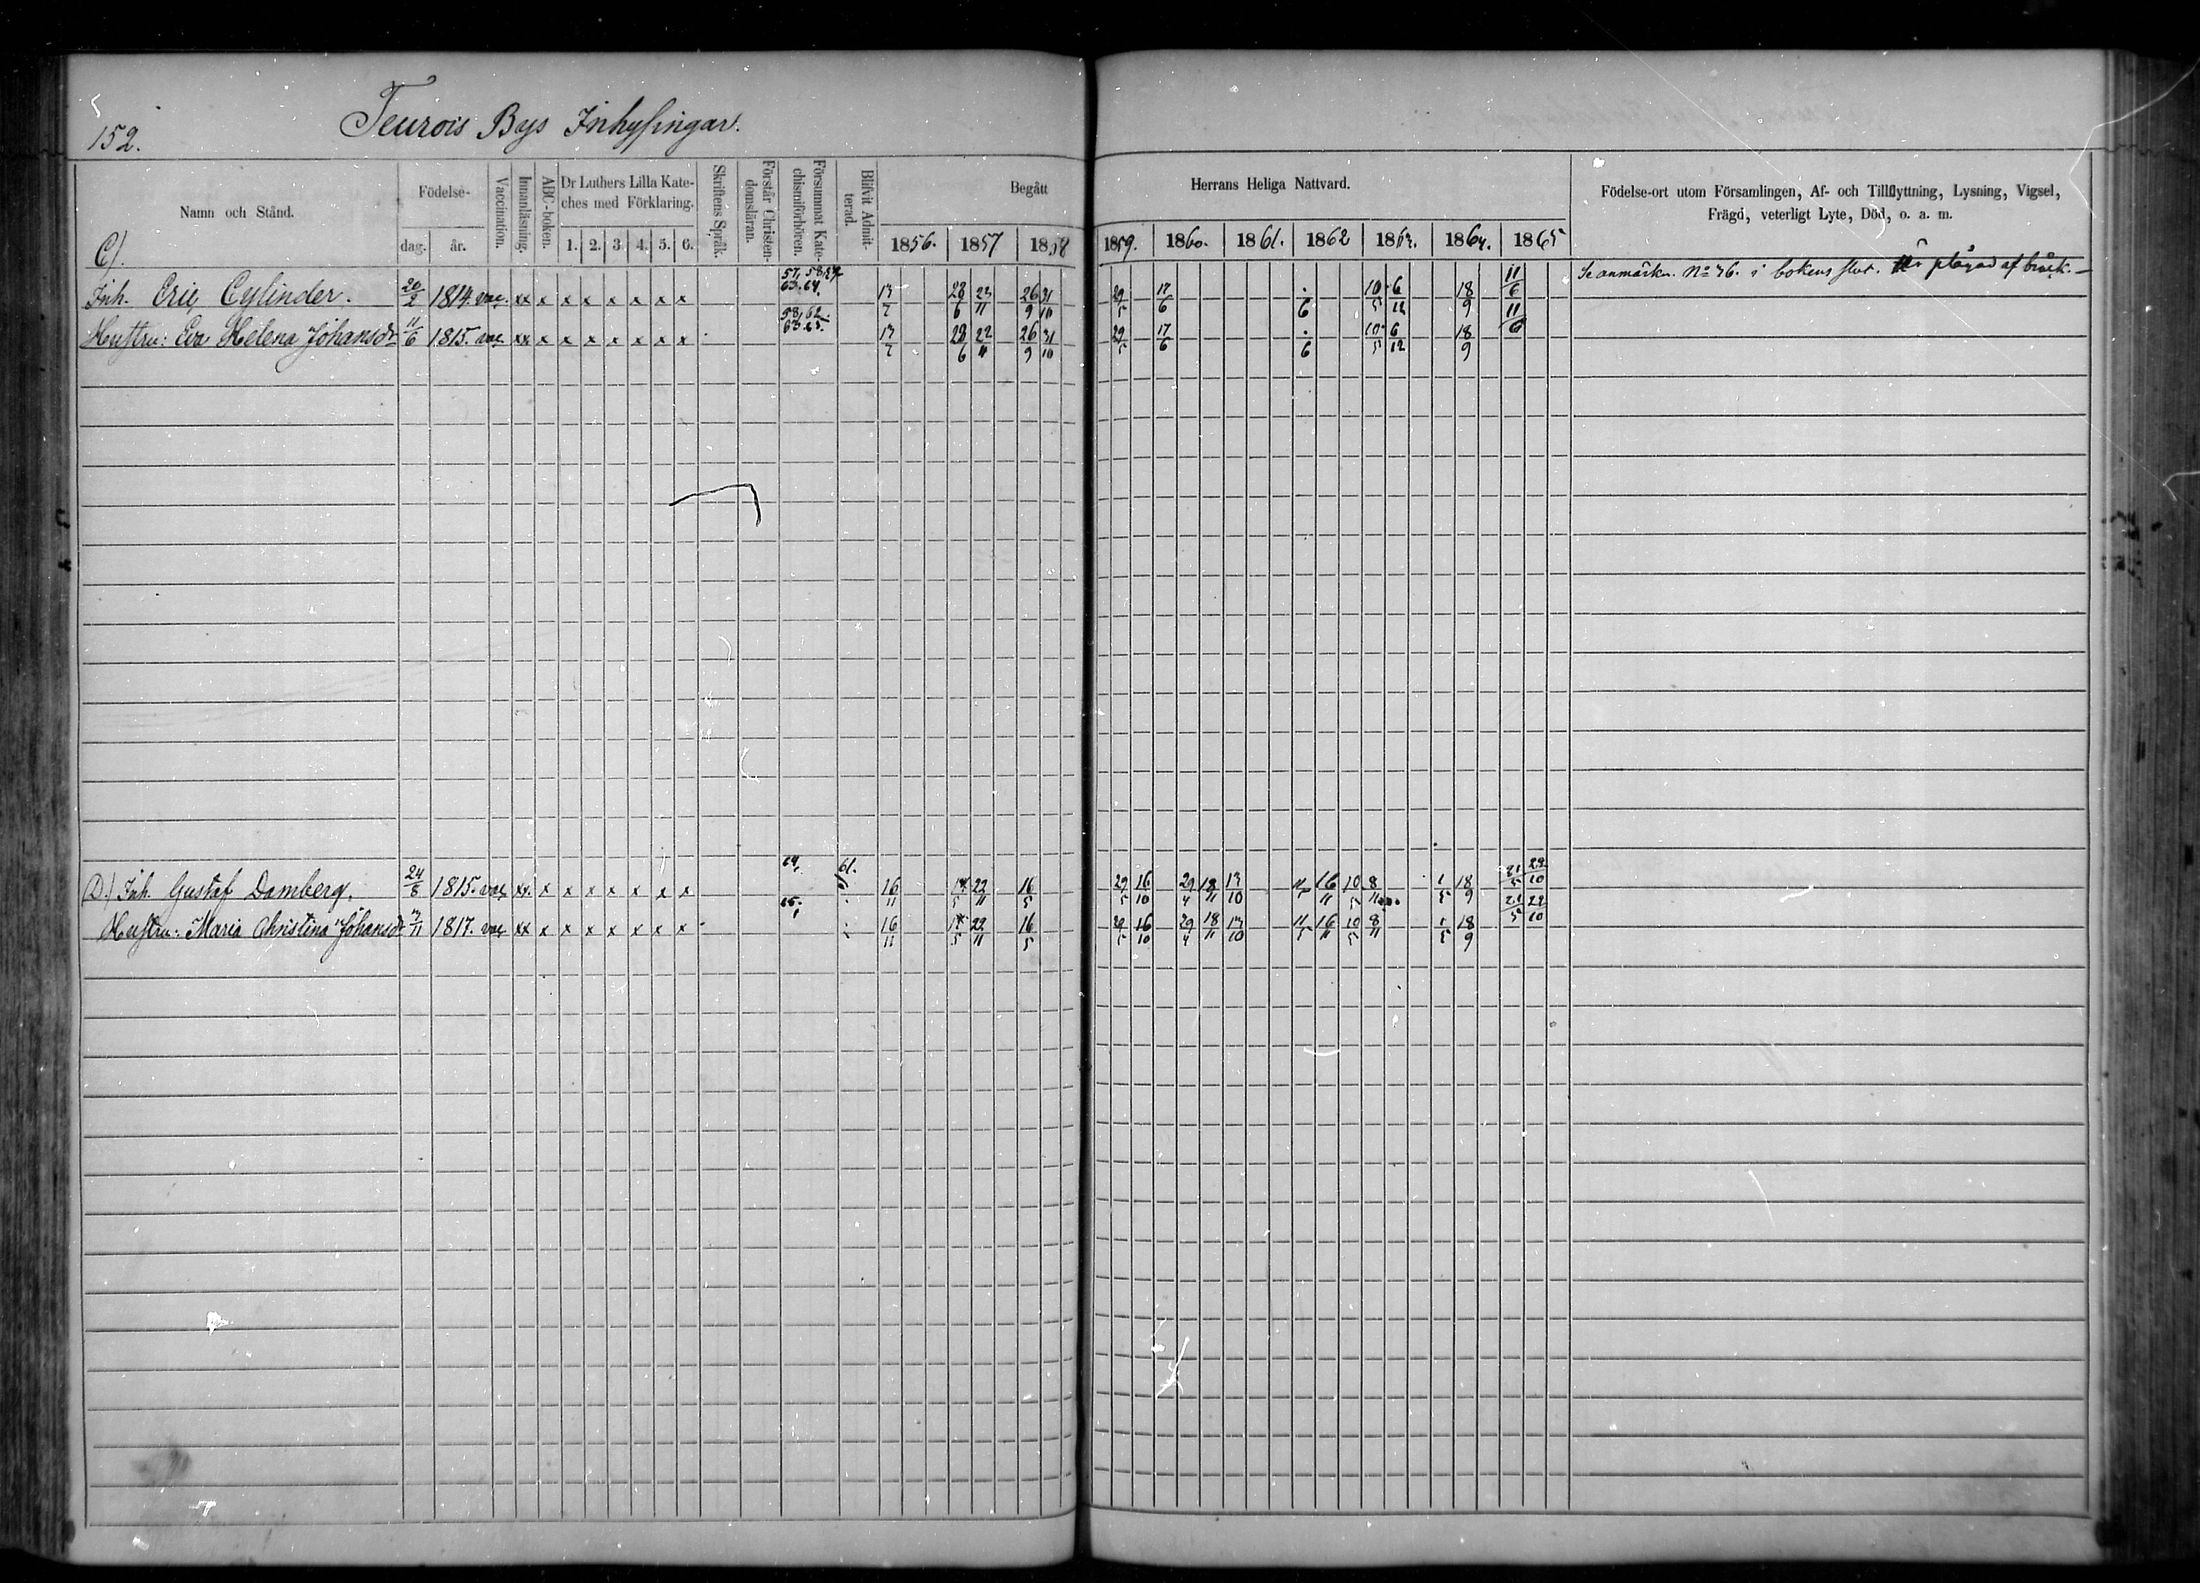 152.
Teurois Bys Inhysingar.
Namn och Stånd.
Födelse-
dag. år.
Vaccination.
Innanläsning.
ABC-boken.
Dr Luthers Lilla Kate-
ches med Förklaring.
1. 2. 3. 4. 5. 6.
Skriftens Språk.
Förstår Christen-
domsläran.
Försummat Kate-
chismiförhören.
Blifvit Admit-
terad.
Begått
1856. 1857 1858
Herrans Heliga Nattvard.
1859. 1860. 1861. 1862 1863. 1864. 1865
Födelse-ort utom Församlingen, Af- och Tillflyttning, Lysning, Vigsel,
Frägd, veterligt Lyte, Död, o. a. m.
C).
Inh. Eric Cylinder. 20/2 1814. vac. xx x x x x x x x 63. 64. 13/7 28/6 23/11 26/9 31/10 29/5 17/6 6 10/5 6/12 18/9 11/6 Se anmärkn. No 76. i bokens slut. Är plågad af bråck.—
Hustru: Eva Helena Johansdr 11/6 1815. vac. xx x x x x x x x 58, 62. 63. 65. 13/7 28/6 22/11 26/9 31/10 29/5 17/6 6 10/5 6/12 18/9 11/6
D.) Inh. Gustaf Damberg. 24/8 1815. vac. xx x x x x x x x 64. 61. 16/11 22/11 16/5 29/5 16/10 29/4 18/11 13/10 11/5 16/11 10/5 8/11 1/5 18/9 21/5 22/10
Hustru: Maria Christina Johansdr 1817. vac. xx x x x x x x x 65. 16/11 22/11 16/5 29/5 16/10 29/4 18/11 13/10 11/5 16/11 10/5 8/11 1/5 18/9 21/5 22/10